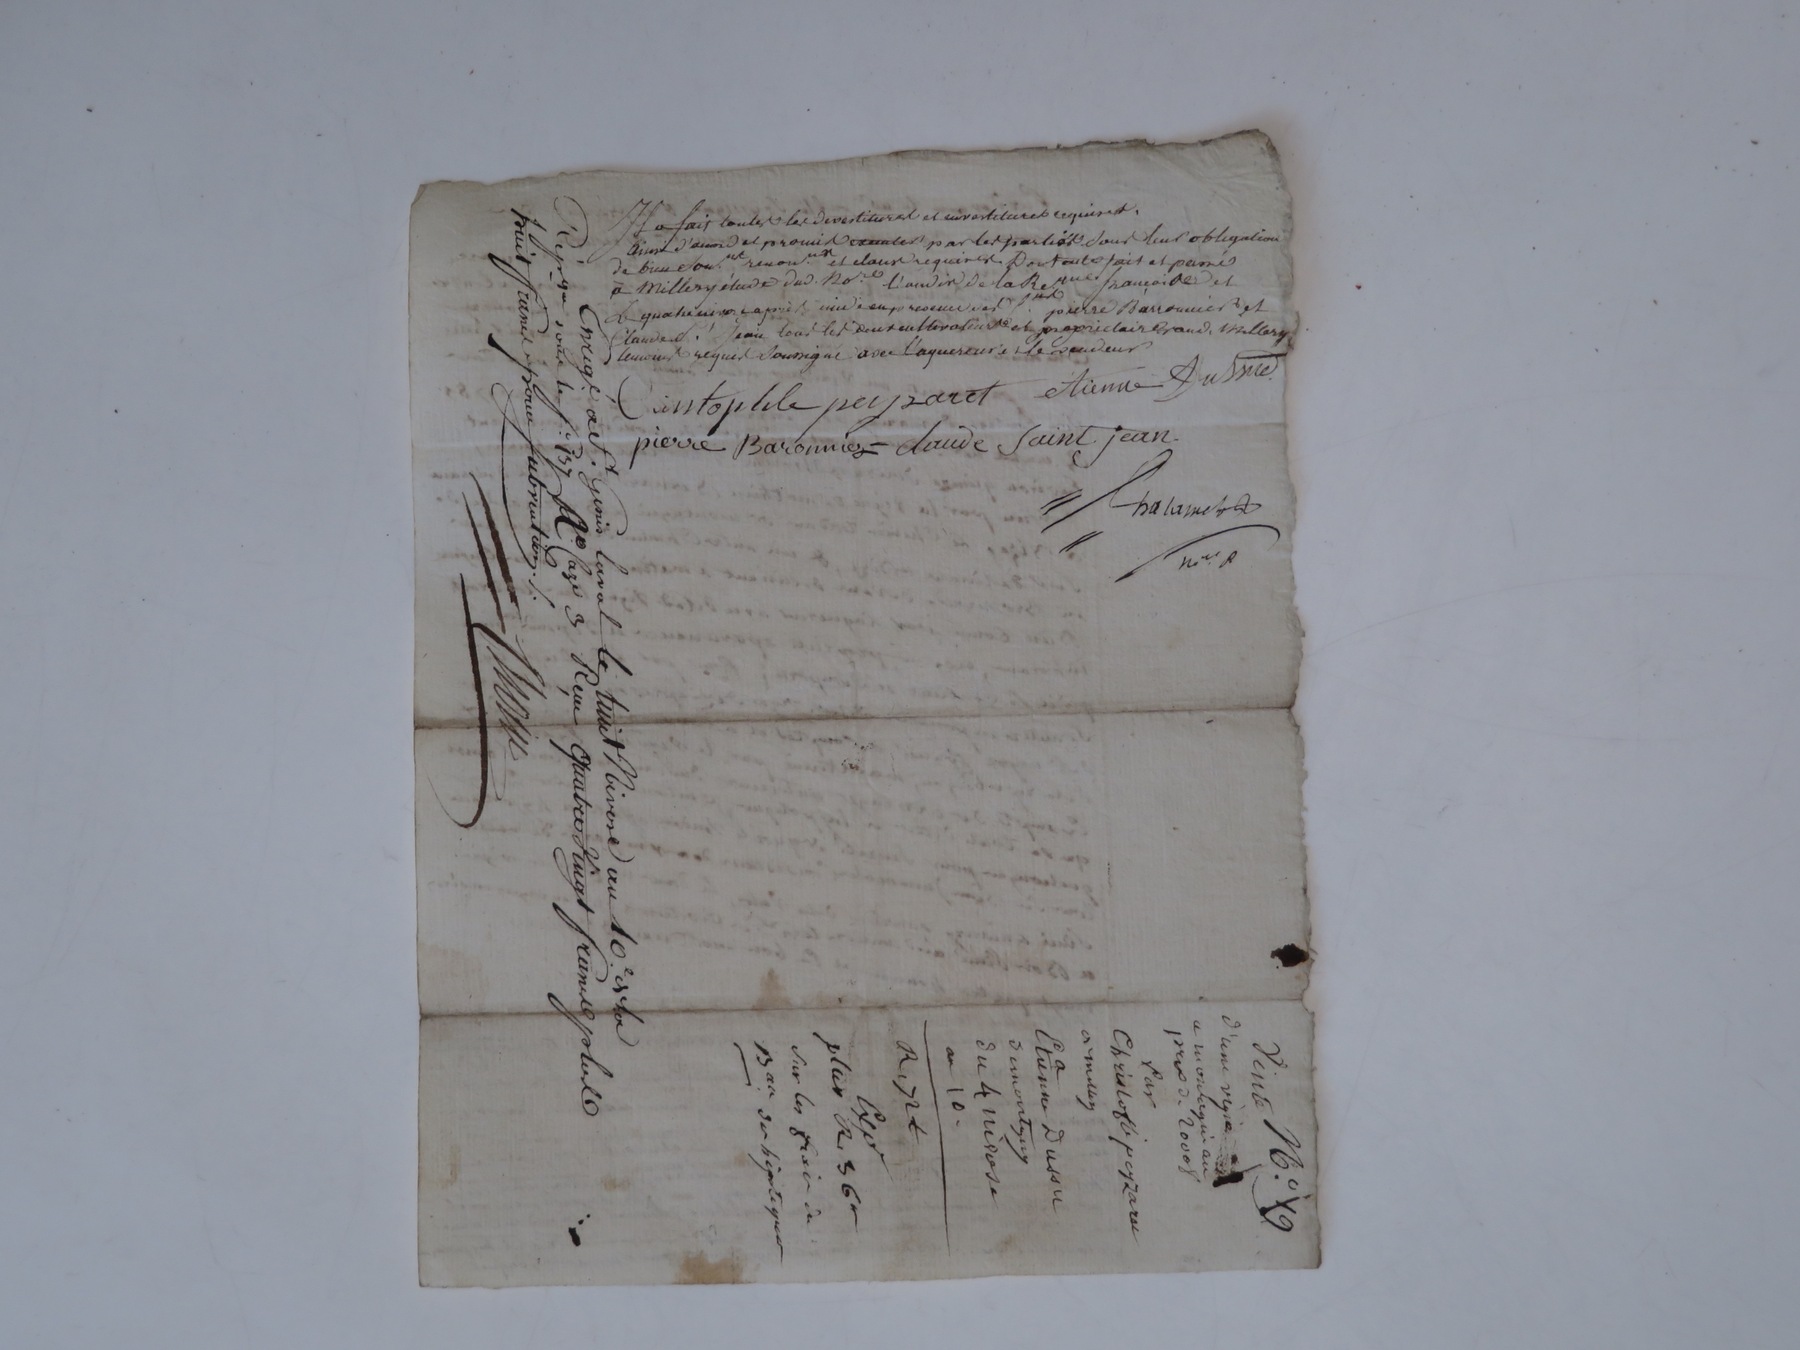 Il a fait toutes les devestitures et investitures requises.
ainsi d'accord et promis par les parties sous leur obligation
de biens et clauses requises. Dont acte fait et passé
a Millery étude dud. No.re l'an dix de la Rep.que françoise et
Le quatre nivose après midi en presence des pierre Barronnier et
Claude S.t Jean tous les deux cultivateurs et propriétaires aud. Millery
temoins requis soussignés avec l'aquereur et le vendeur
Cristophle peyzaret etienne
pierre Baronnier claude Saint jean
Chalamel
n.re
Enregé a S.t Genis laval le huit Nivose an 10. et la
Rep.que sous le f.o 137 R.o Case 3 Reçu Quatre Vingt francs plus
huit francs pour subvention.
Vente N.o 19
d'une vigne
a
prix de 2000
Par
Christofle peyzaret
a
Etienne
de montagny
du 4 nivose
an 10.
R. 72
plus R. 36
sur les